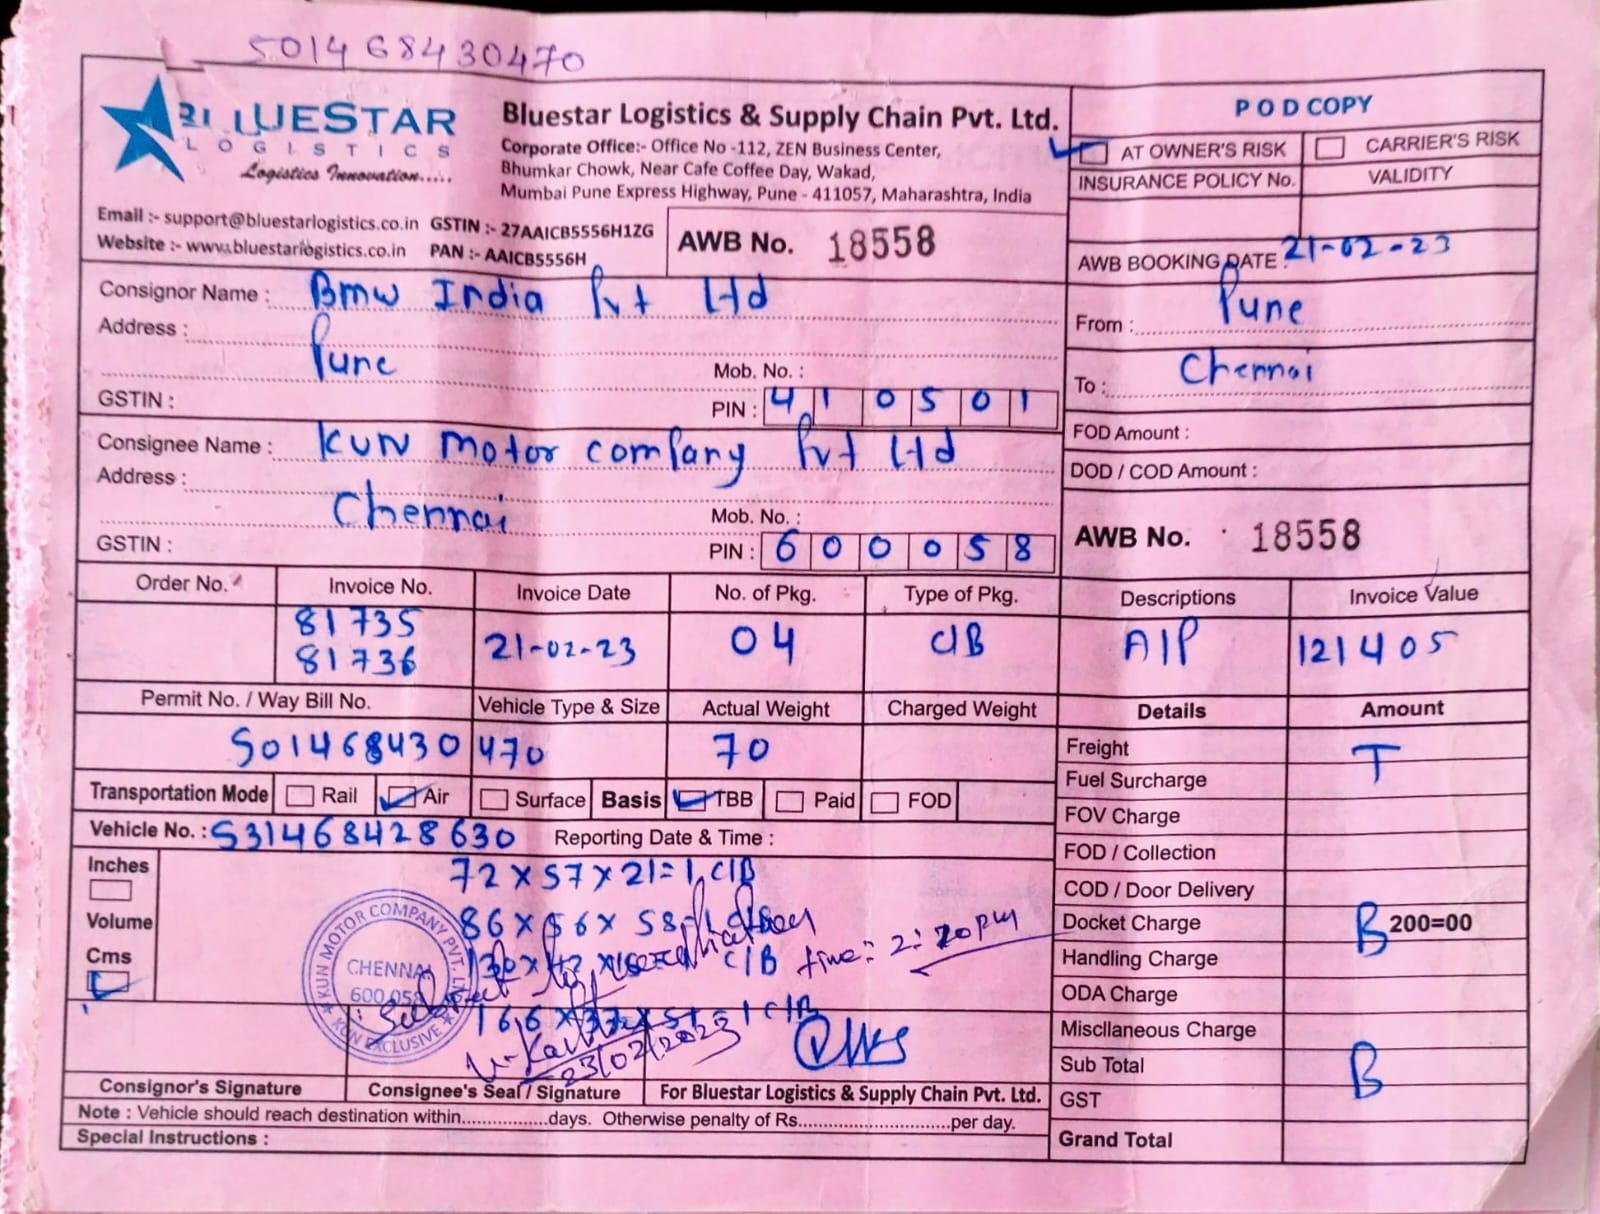 501468430470
BLUESTAR
LOGISTICS
Logistics Innovation.....
Bluestar Logistics & Supply Chain Pvt. Ltd.
Corporate Office:- Office No -112, ZEN Business Center,
Bhumkar Chowk, Near Cafe Coffee Day, Wakad,
Mumbai Pune Express Highway, Pune - 411057, Maharashtra, India
Email :- support@bluestarlogistics.co.in GSTIN :- 27AAICB5556H1ZG
Website :- www.bluestarlogistics.co.in PAN :- AAICB5556H
AWB No. 18558
POD COPY
AT OWNER'S RISK CARRIER'S RISK
INSURANCE POLICY No. VALIDITY
AWB BOOKING DATE : 21-02-23
Consignor Name : BMW India Pvt Ltd
Address : Pune
Mob. No. :
GSTIN : PIN : 410501
From : Pune
To : Chennai
Consignee Name : KUN Motor company Pvt Ltd
Address : Chennai
Mob. No. :
GSTIN : PIN : 600058
FOD Amount :
DOD / COD Amount :
AWB No. 18558
Order No. Invoice No. Invoice Date No. of Pkg. Type of Pkg. Descriptions Invoice Value
81735
81736 21-02-23 04 C/B A/P 121405
Permit No. / Way Bill No. Vehicle Type & Size Actual Weight Charged Weight Details Amount
501468430 470 70
Freight T
Fuel Surcharge
Transportation Mode Rail Air Surface Basis TBB Paid FOD
FOV Charge
Vehicle No. : 531468428630 Reporting Date & Time :
FOD / Collection
COD / Door Delivery
Docket Charge 200=00
Handling Charge
ODA Charge
Miscllaneous Charge
Sub Total B
GST
Grand Total
Inches
Volume
Cms
72 x 57 x 21 = 1 C/B
86 x 56 x 58
C/B time: 2:20 PM
Subject to
23/02/2023
KUN MOTOR COMPANY PVT. LTD.
CHENNAI
600 058
KUN EXCLUSIVE
Consignor's Signature Consignee's Seal / Signature For Bluestar Logistics & Supply Chain Pvt. Ltd.
Note : Vehicle should reach destination within.................days. Otherwise penalty of Rs..............................per day.
Special Instructions :